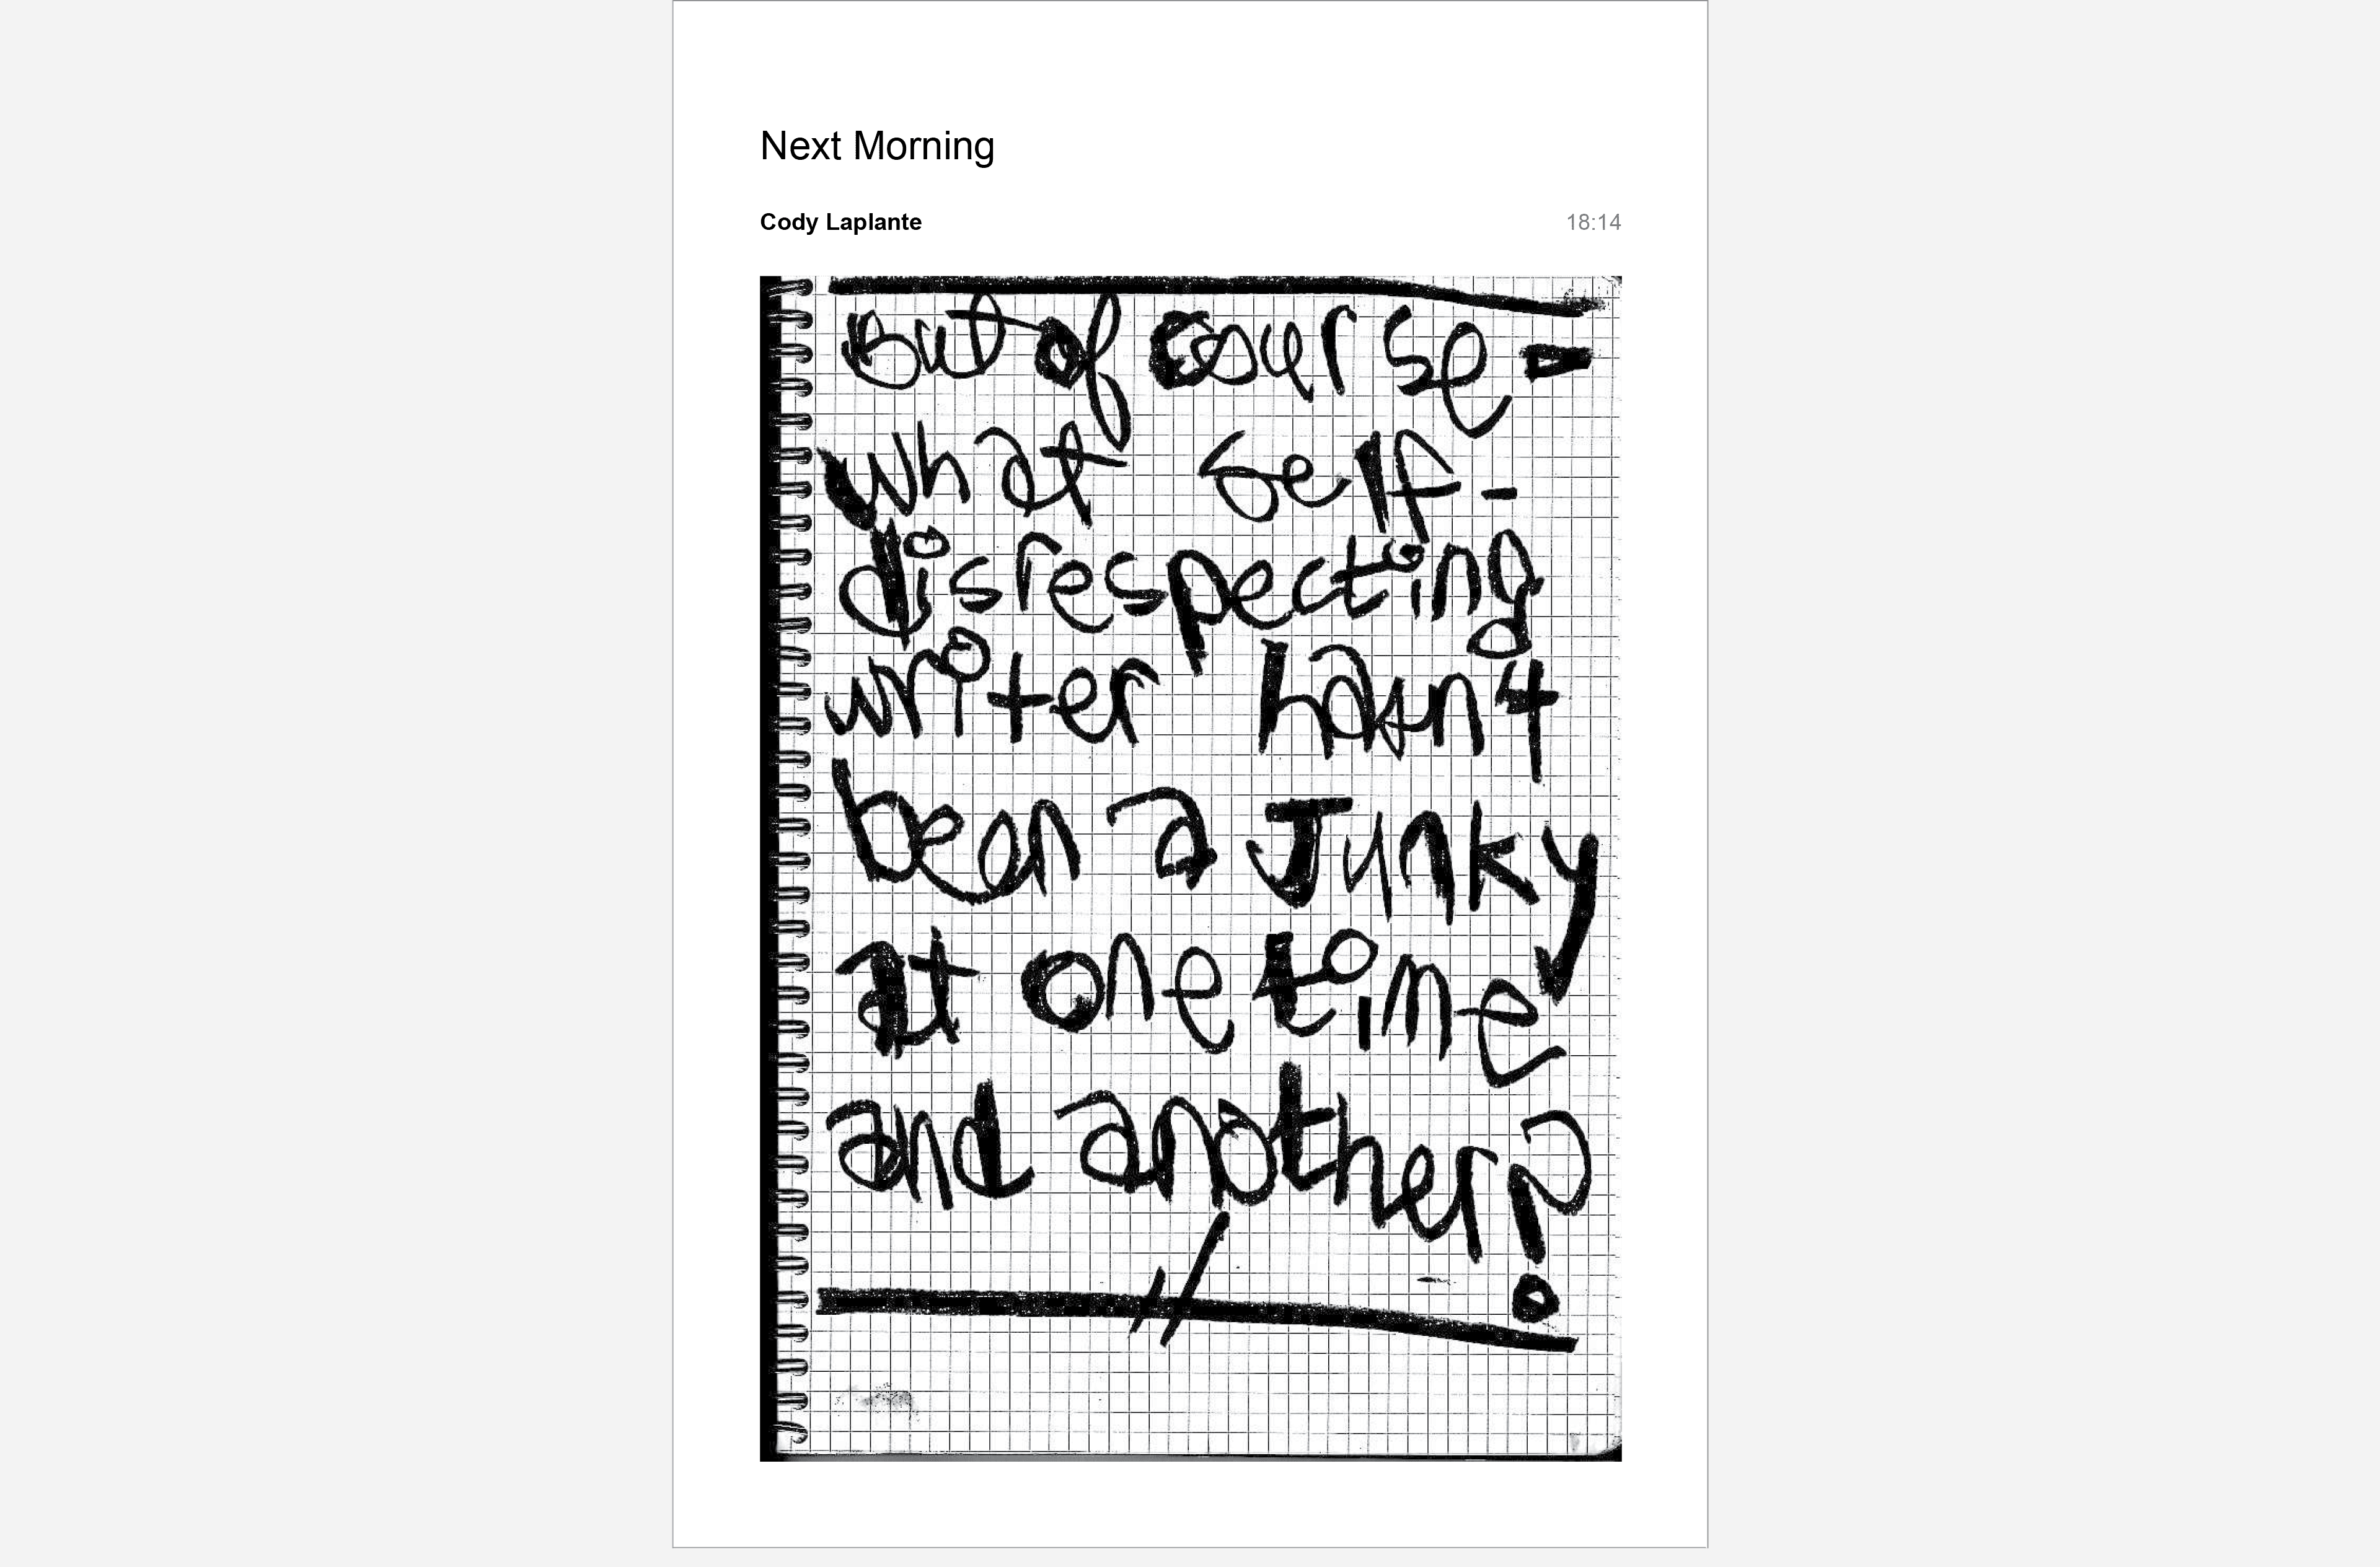 Next Morning
Cody Laplante 18:14
But of course -
what self-
disrespecting
writer hasn't
been a Junky
at one time
and another?
//